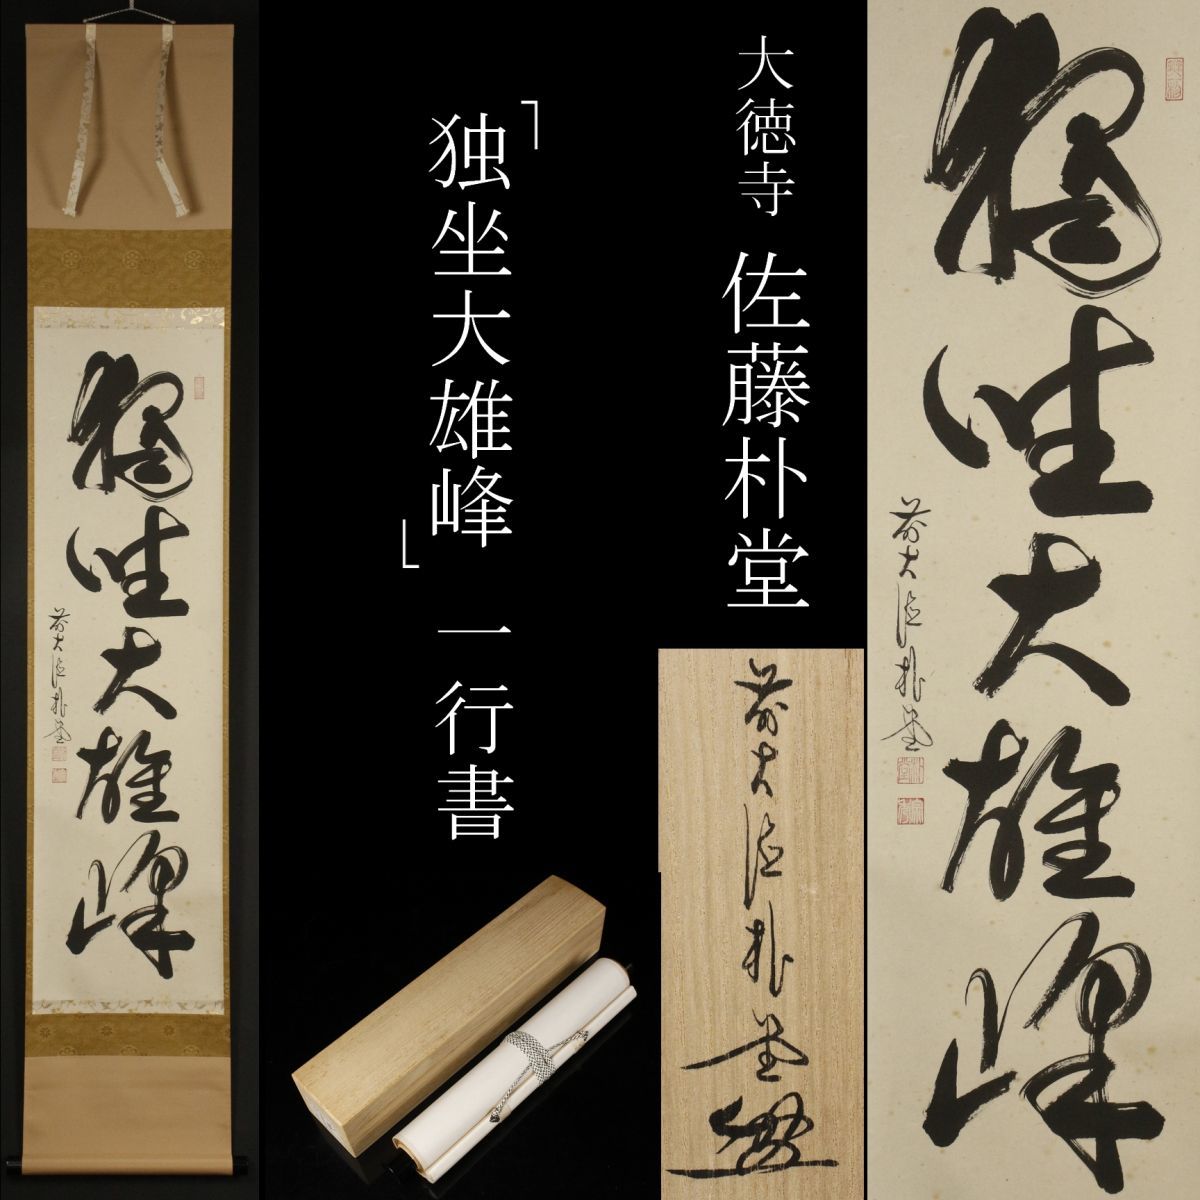 大徳寺 佐藤朴堂
「独坐大雄峰」 一行書
獨坐大雄峰
前大徳朴堂
朴堂
獨坐大雄峰
前大徳朴堂
前大徳朴堂